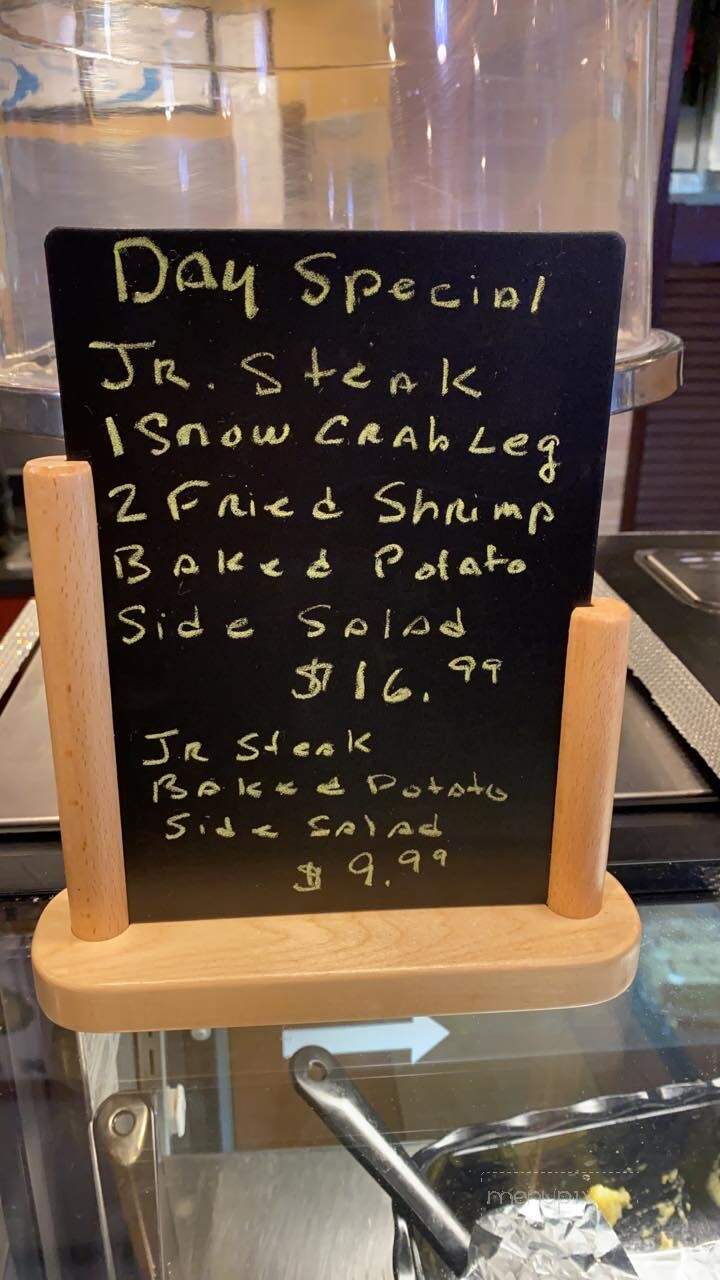 Day Special
JR. Steak
1 Snow CRAb Leg
2 Fried Shrimp
Baked Potato
Side Salad
$16.99
JR Steak
Baked Potato
Side Salad
$9.99
menupix